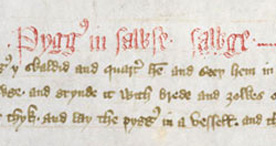 Pyggꝰ in sawse sawge
gꝰ y skaldid and quartꝰ hē and seeþ hem in
wge. and grynde it with brede and ȝolkes
thyk. and lay the pyggꝰ in a vessell. and